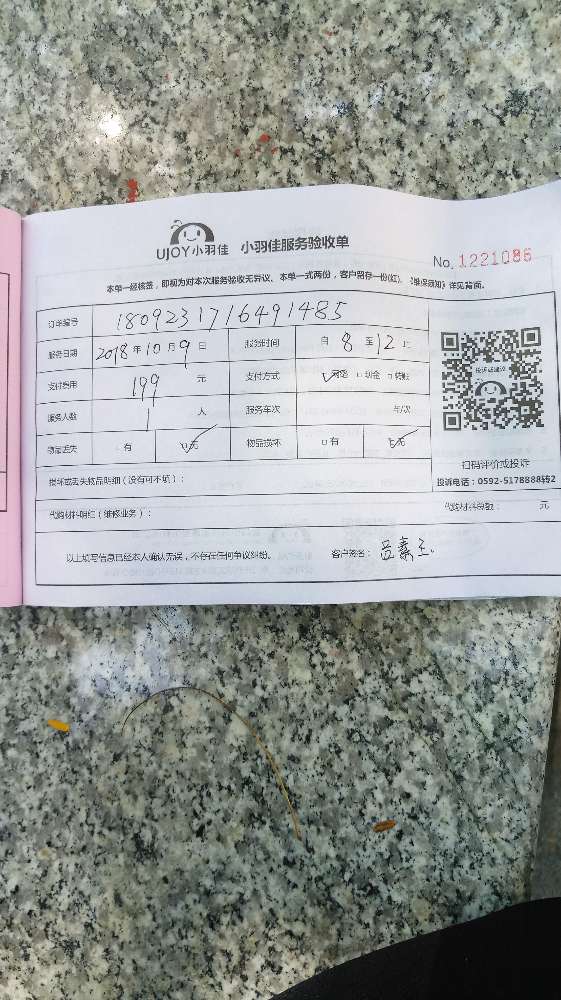 UJOY小羽佳 小羽佳服务验收单
No. 1221086
本单一经核签，即视为对本次服务验收无异议。本单一式两份，客户留存一份(红)。《维保须知》详见背面。
订单编号 1809231716491485
服务日期 2018 年 10 月 9 日 服务时间 自 8 至 12 止
支付费用 199 元 支付方式 ☑网络 □现金 □转账
服务人数 1 人 服务车次 车/次
物品丢失 □有 ☑无 物品损坏 □有 ☑无
投诉或建议
扫码评价或投诉
投诉电话：0592-5178888转2
损坏或丢失物品明细（没有可不填）：
代购材料明细（维修业务）： 代购材料总额： 元
以上填写信息已经本人确认无误，不存在任何争议纠纷。 客户签名：